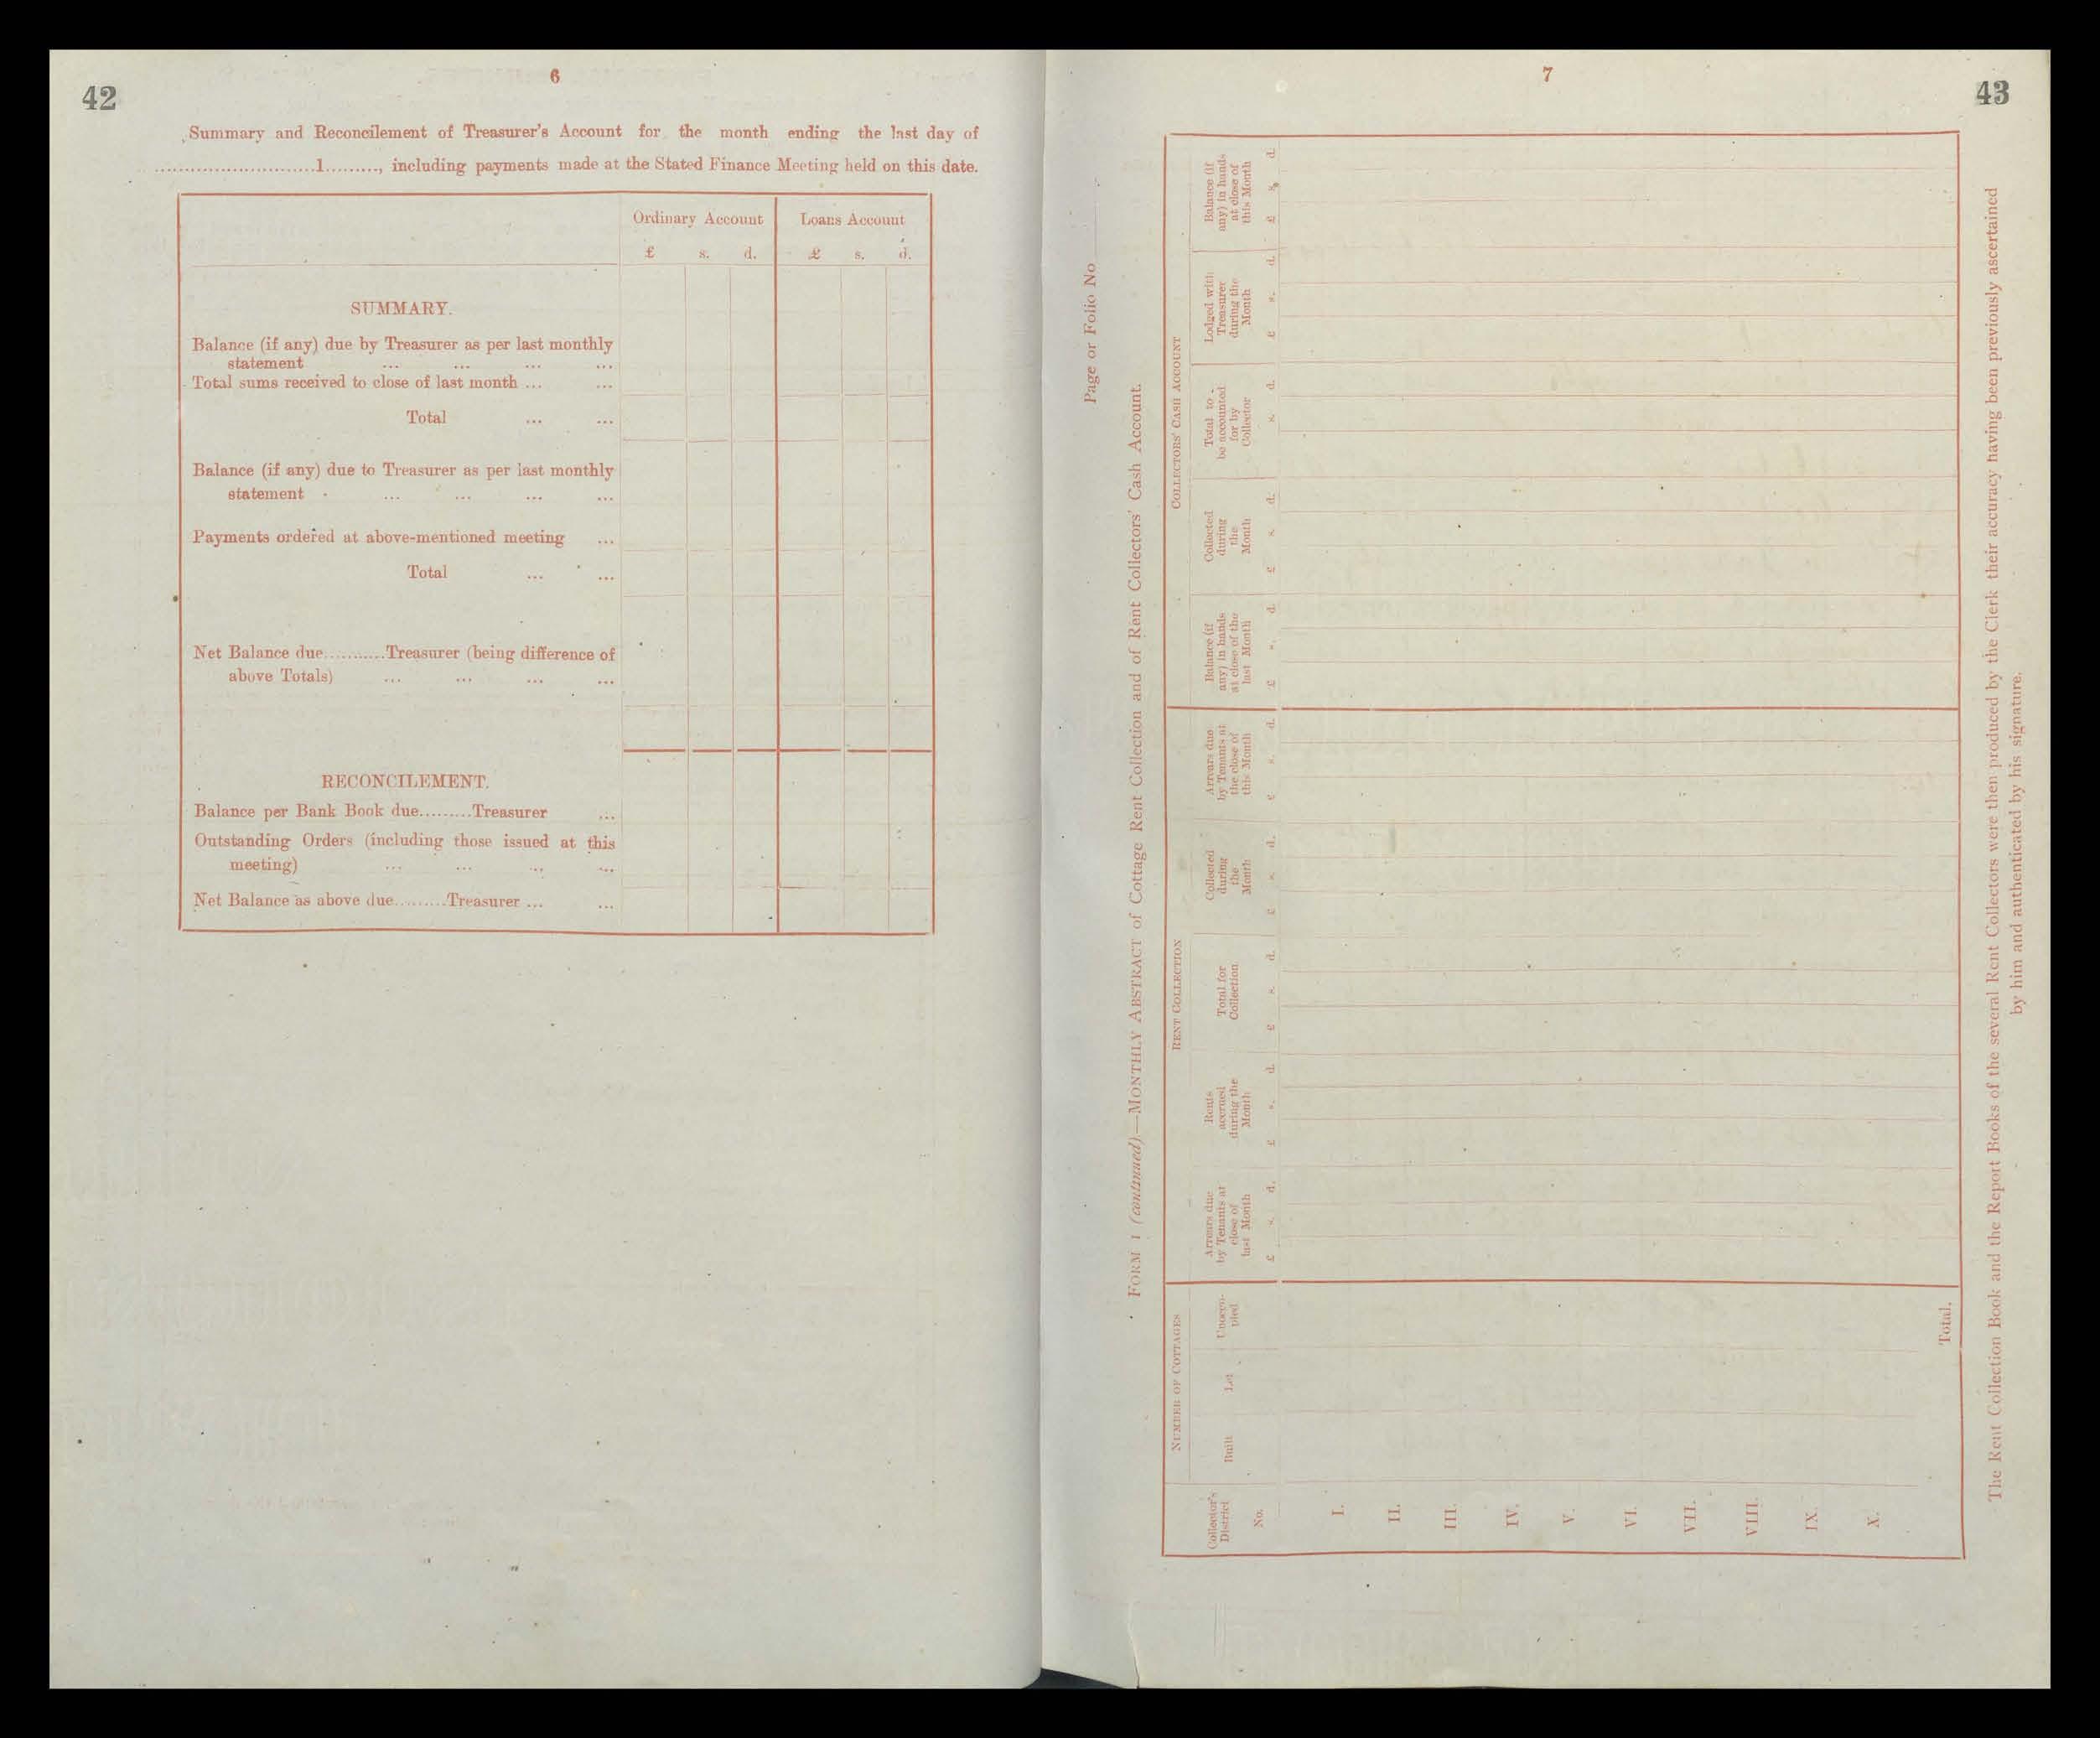 42
6
Summary and Reconcilement of Treasurer's Account for the month ending the last day of
............................1........., including payments made at the Stated Finance Meeting held on this date.
Ordinary Account
Loans Account
£ s. d. £ s. d.
SUMMARY.
Balance (if any) due by Treasurer as per last monthly
statement ... ... ... ...
Total sums received to close of last month ... ...
Total ... ...
Balance (if any) due to Treasurer as per last monthly
statement ... ... ... ...
Payments ordered at above-mentioned meeting ...
Total ... ...
Net Balance due...........Treasurer (being difference of
above Totals) ... ... ... ...
RECONCILEMENT.
Balance per Bank Book due.........Treasurer ...
Outstanding Orders (including those issued at this
meeting) ... ... ... ...
Net Balance as above due.........Treasurer ... ...
7
43
Page or Folio No
FORM 1 (continued).—MONTHLY ABSTRACT of Cottage Rent Collection and of Rent Collectors' Cash Account.
NUMBER OF COTTAGES
RENT COLLECTION
COLLECTORS' CASH ACCOUNT
Collector's
District
No.
Built
Let
Unoccu-
pied
Arrears due
by Tenants at
close of
last Month
£ s. d.
Rents
accrued
during the
Month
£ s. d.
Total for
Collection
£ s. d.
Collected
during
the
Month
£ s. d.
Arrears due
by Tenants at
the close of
this Month
£ s. d.
Balance (if
any) in hands
at close of the
last Month
£ s. d.
Collected
during
the
Month
£ s. d.
Total to
be accounted
for by
Collector
s. d.
Lodged with
Treasurer
during the
Month
£ s. d.
Balance (if
any) in hands
at close of
this Month
£ s. d.
I.
II.
III.
IV.
V.
VI.
VII.
VIII.
IX.
X.
Total.
The Rent Collection Book and the Report Books of the several Rent Collectors were then produced by the Clerk their accuracy having been previously ascertained
by him and authenticated by his signature.